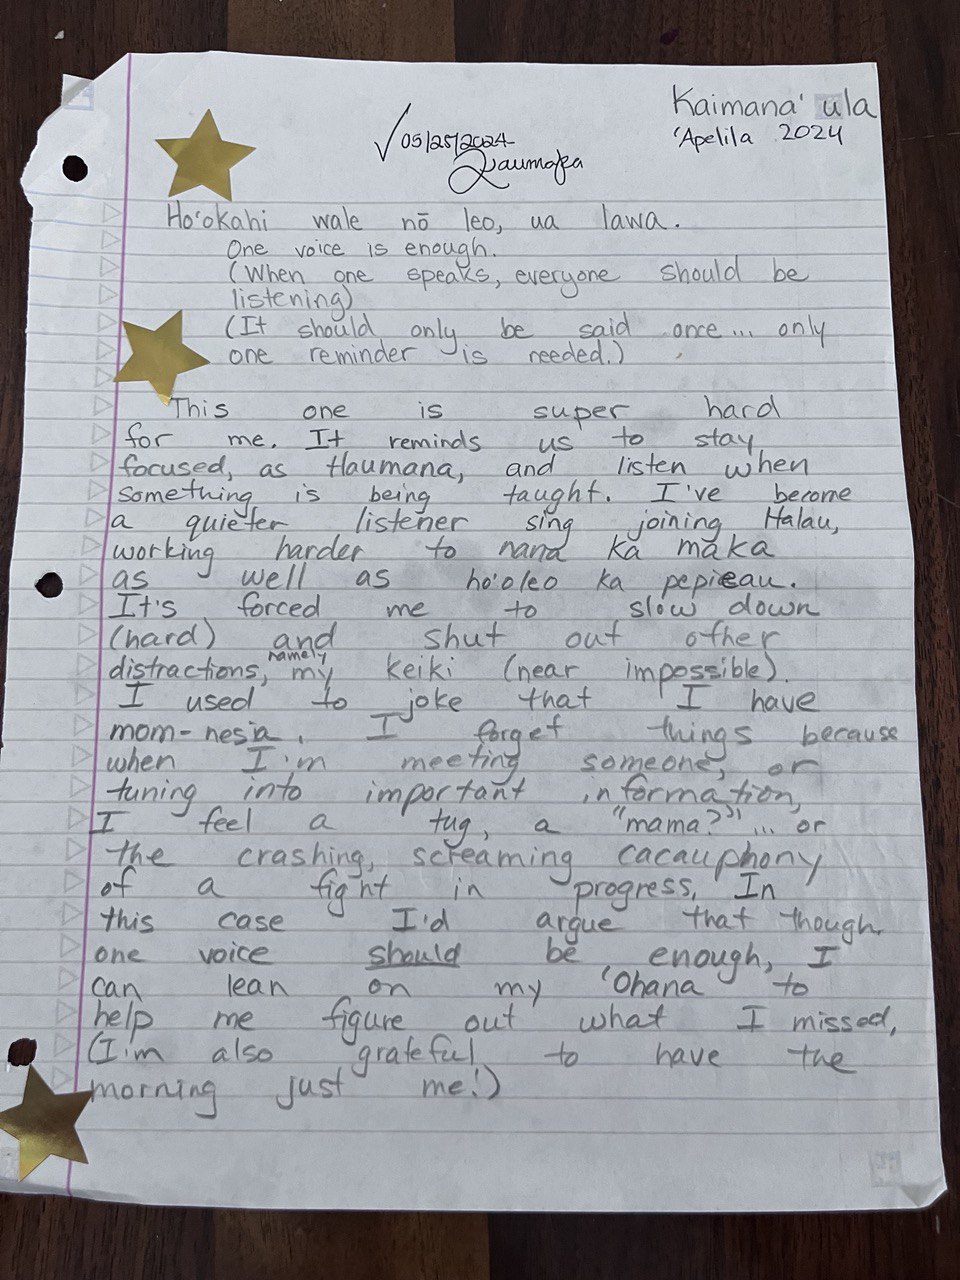 Kaimana'ula
'Apelila 2024
√05/25/2024
Kaumaka
Ho'okahi wale nō leo, ua lawa.
One voice is enough.
(When one speaks, everyone should be
listening)
(It should only be said once... only
one reminder is needed.)
This one is super hard
for me. It reminds us to stay
focused, as Haumana, and listen when
something is being taught. I've become
a quieter listener sing joining Halau,
working harder to nana ka maka
as well as ho'oleo ka pepieau.
It's forced me to slow down
(hard) and shut out other
distractions, namely my keiki (near impossible).
I used to joke that I have
mom-nesia. I forget things because
when I'm meeting someone, or
tuning into important information,
I feel a tug, a "mama?"... or
the crashing, screaming cacauphony
of a fight in progress. In
this case I'd argue that though
one voice should be enough, I
can lean on my 'Ohana to
help me figure out what I missed,
(I'm also grateful to have the
morning just me!)